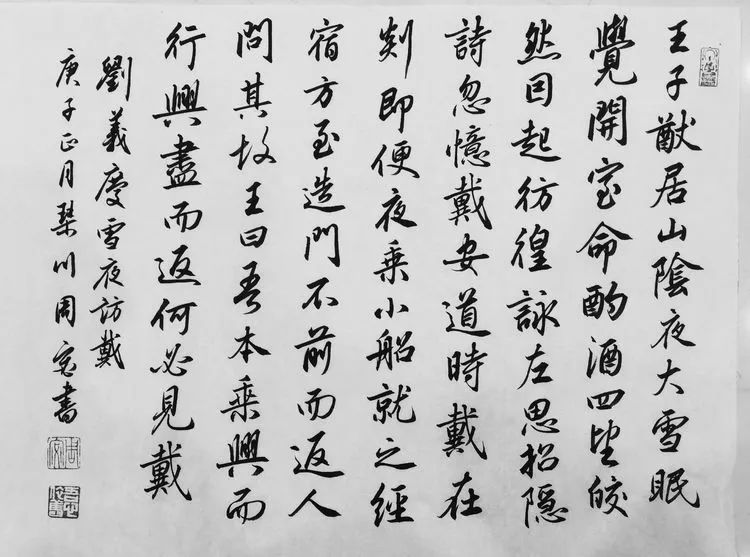 王子猷居山陰夜大雪眠
覺開室命酌酒四望皎
然因起彷徨詠左思招隱
詩忽憶戴安道時戴在
剡即便夜乘小船就之經
宿方至造門不前而返人
問其故王曰吾本乘興而
行興盡而返何必見戴
劉義慶雪夜訪戴
庚子正月琹川周宏書